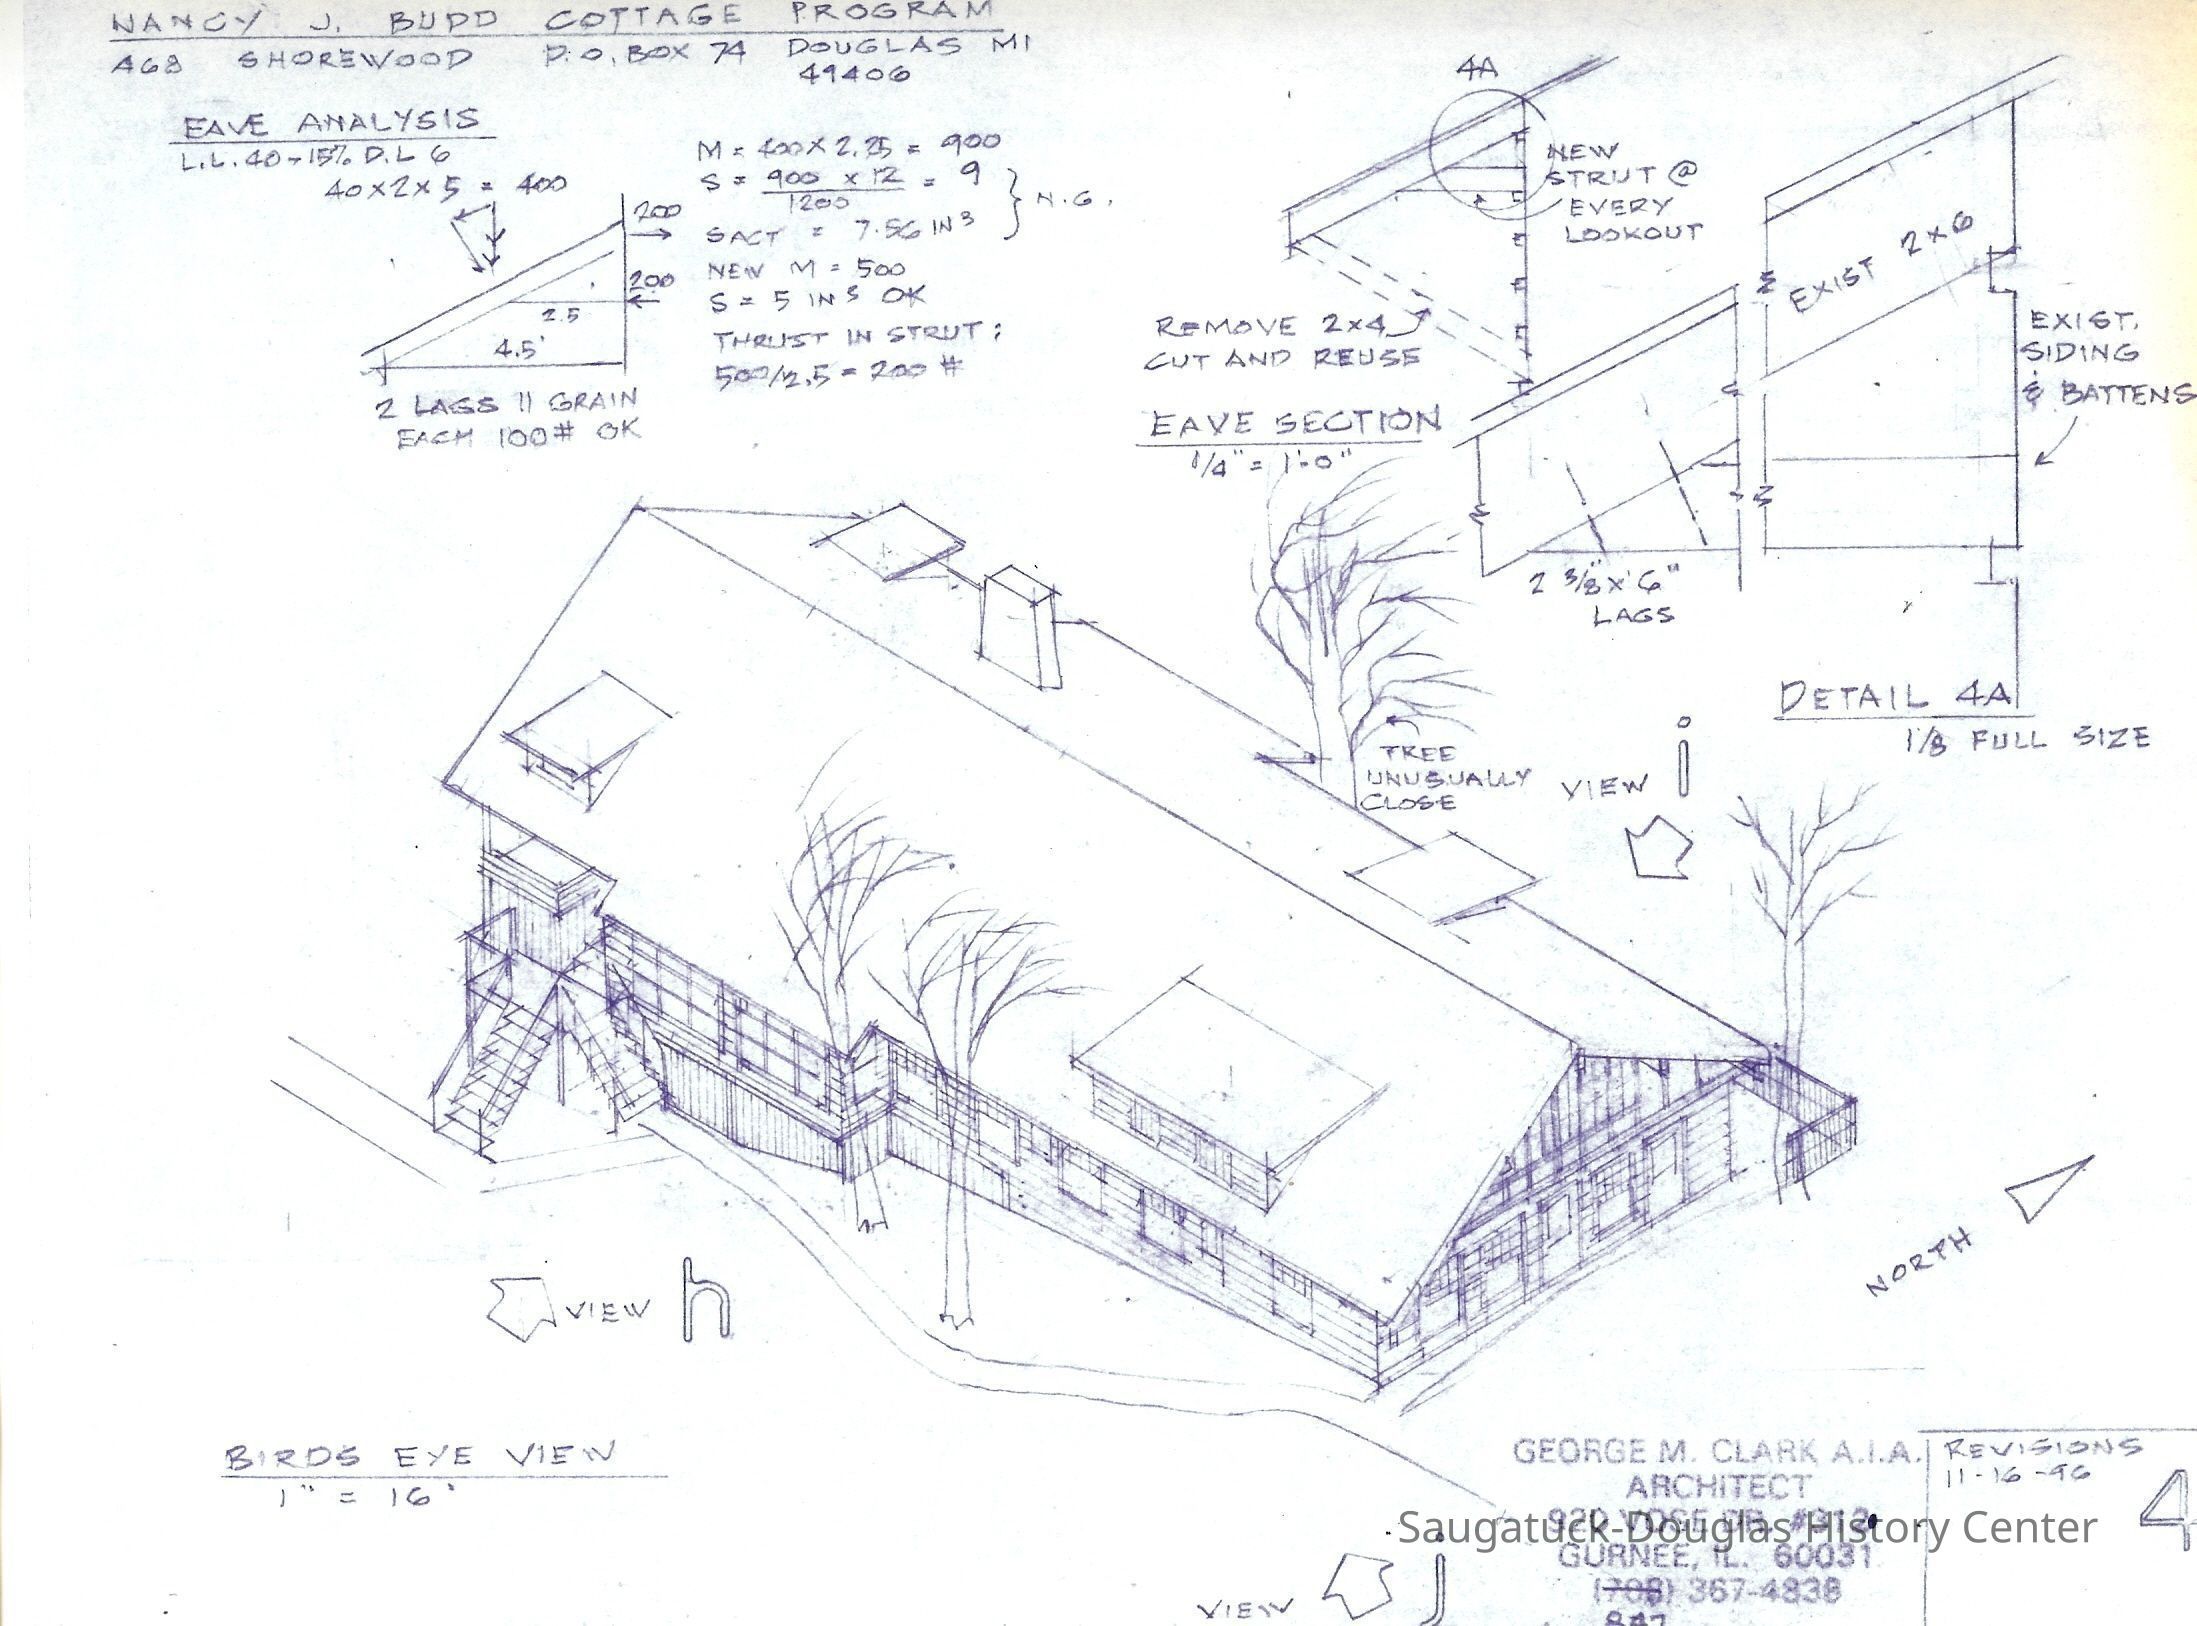 NANCY J. BUDD COTTAGE PROGRAM
468 SHOREWOOD P.O. BOX 74 DOUGLAS MI
49406
EAVE ANALYSIS
L.L. 40-15% D.L 6
40 x 2 x 5 = 400
200
200
2.5
4.5'
2 LAGS || GRAIN
EACH 100# OK
M = 400 X 2.25 = 900
S = 900 x 12 = 9
1200
SACT = 7.56 IN3
} N.G.
NEW M = 500
S = 5 IN3 OK
THRUST IN STRUT:
500/2.5 = 200 #
4A
NEW
STRUT @
EVERY
LOOKOUT
REMOVE 2x4
CUT AND REUSE
EAVE SECTION
1/4" = 1'-0"
EXIST 2x6
EXIST.
SIDING
& BATTENS
2 3/8" x 6"
LAGS
DETAIL 4A
1/8 FULL SIZE
TREE
UNUSUALLY
CLOSE
VIEW i
NORTH
VIEW h
BIRDS EYE VIEW
1" = 16'
VIEW j
GEORGE M. CLARK A.I.A.
ARCHITECT
920 VOSE DR. #312
GURNEE, IL. 60031
(708) 367-4838
847
REVISIONS
11-16-96
4
Saugatuck-Douglas History Center